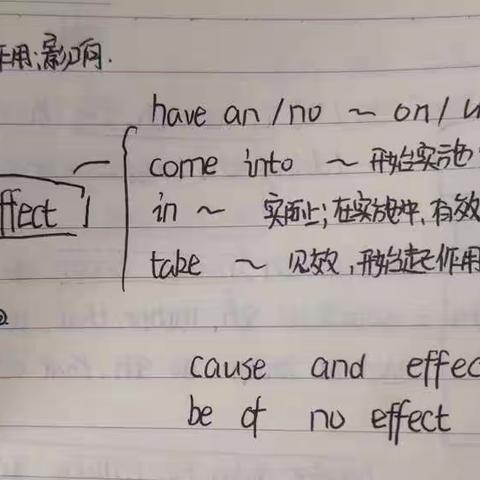 作用;影响.
have an/no ~ on/u
come into ~ 开始实施
ffect
in ~ 实际上;在实施中,有效
take ~ 见效,开始起作用
②
cause and effec
be of no effect